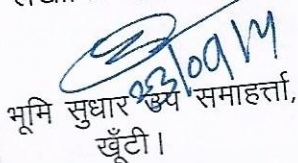 23/09/14
भूमि सुधार उप समाहर्त्ता,
खूँटी।